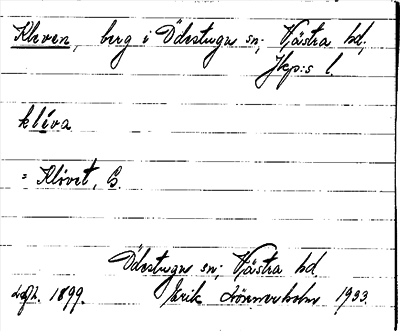 Kleven, berg i Ödestugu sn; Västra hd,
Jkp:s l.
kléva
= Klövet, G.
Ödestugu sn; Västra hd
1899. Erik Lönnerholm 1933.